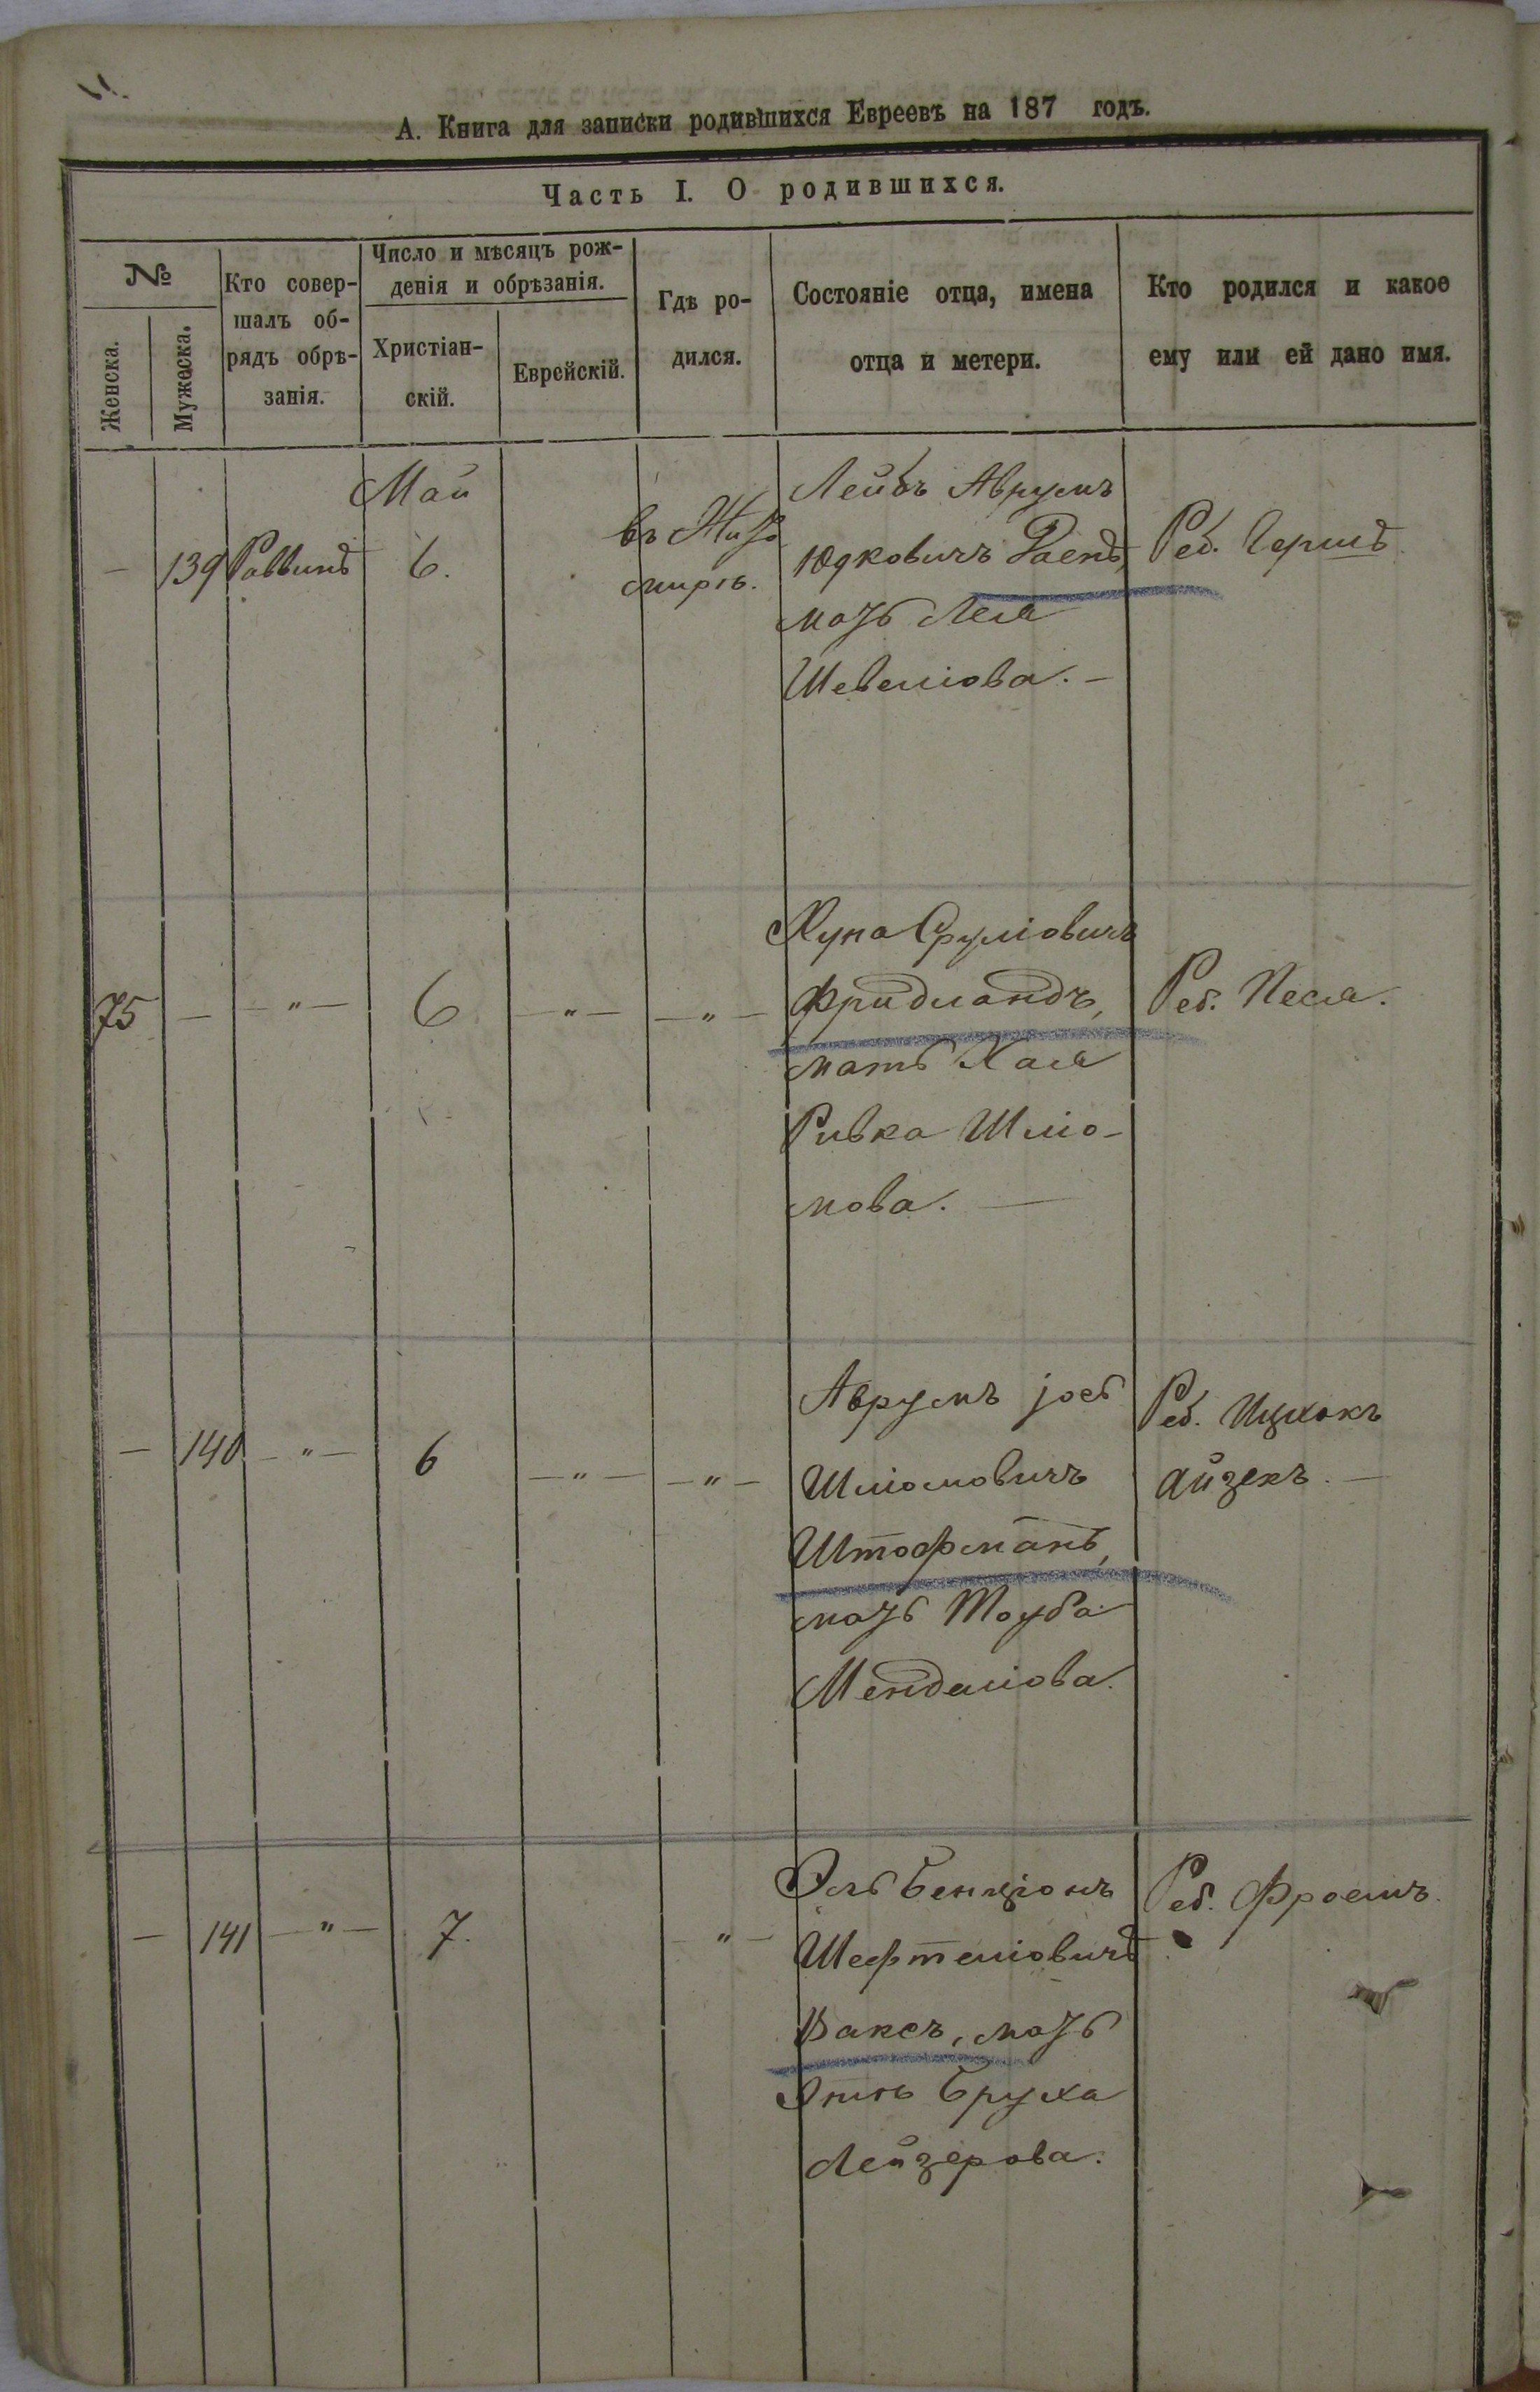 А. Книга для записки родившихся Евреевъ на 187 годъ.
Часть I. О родившихся.
№
Женска.
Мужеска.
Кто совер-
шалъ об-
рядъ обрѣ-
занія.
Число и мѣсяцъ рож-
денія и обрѣзанія.
Христіан-
скій.
Еврейскій.
Гдѣ ро-
дился.
Состояніе отца, имена
отца и метери.
Кто родился и какое
ему или ей дано имя.
— 139 Раввинъ
Май
6.
въ Жито
мирѣ.
Лейбъ Аврумъ
Юдковичъ
мать Лея
Шевеліова. —
Реб. Гершъ
75 — — " — 6 — " — — " —
Хуна Сруліовичъ
Фридландъ,
мать Хая
Ривка Шліо-
мова. —
Реб. Песя.
— 140 — " — 6 — " — — " —
Аврумъ
Шліомовичъ
Штофманъ,
мать Тауба
Менделіова.
Реб. Ицхокъ
Айзекъ. —
— 141 — " — 7. " —
Бенціонъ
Шефтеліовичъ
Ваксъ, мать
Бруха
Лейзерова.
Реб. Фроемъ.